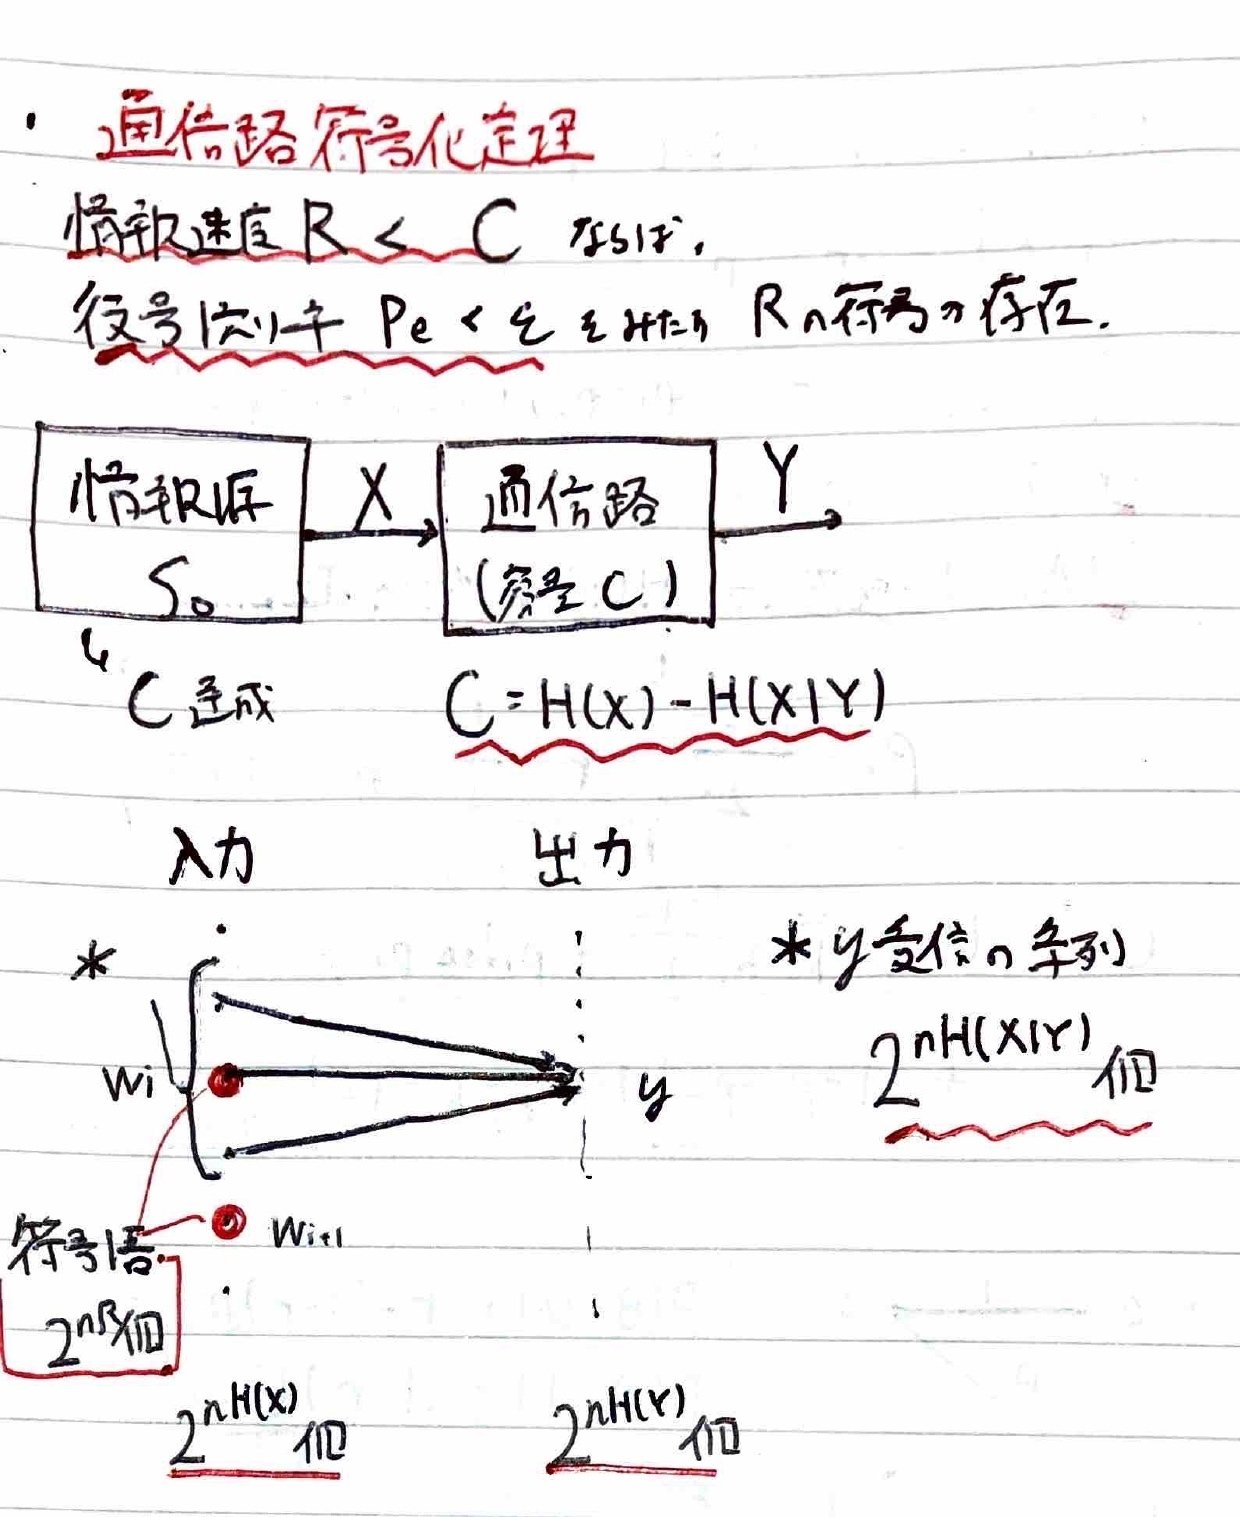 ・通信路符号化定理
情報速度 R < C ならば、
復号誤り率 Pe < ε をみたす Rの符号が存在.
情報源 S₀
X
通信路 (容量 C)
Y
↳ C達成
C = H(X) - H(X|Y)
入力 出力
*
* y受信の系列
2^{nH(X|Y)}個
wi
y
wi+1
符号語
2^{nR}個
2^{nH(X)}個 2^{nH(Y)}個